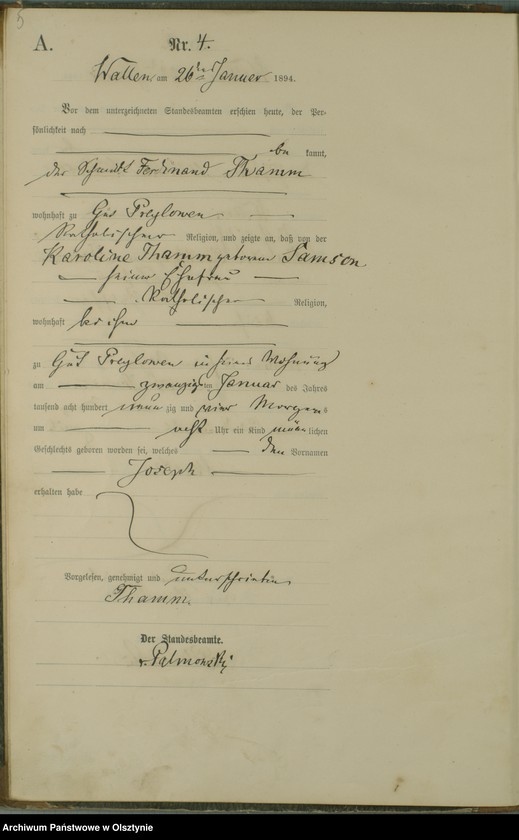 5
A.
Nr. 4.
Wallen am 26ten Januar 1894.
Vor dem unterzeichneten Standesbeamten erschien heute, der Per-
sönlichkeit nach
be kannt,
der Schmidt Ferdinand Thamm
wohnhaft zu Gut Preylowen
Katholischer Religion, und zeigte an, daß von der
Karoline Thamm geborene Samson
seiner Ehefrau
Katholischer Religion,
wohnhaft bei ihm
zu Gut Preylowen in seiner Wohnung
am zwanzigsten Januar des Jahres
tausend acht hundert neun zig und vier Morgens
um acht Uhr ein Kind männ lichen
Geschlechts geboren worden sei, welches den Vornamen
Joseph
erhalten habe
Vorgelesen, genehmigt und unterschrieben
Thamm.
Der Standesbeamte.
v. Palmowski
Archiwum Państwowe w Olsztynie